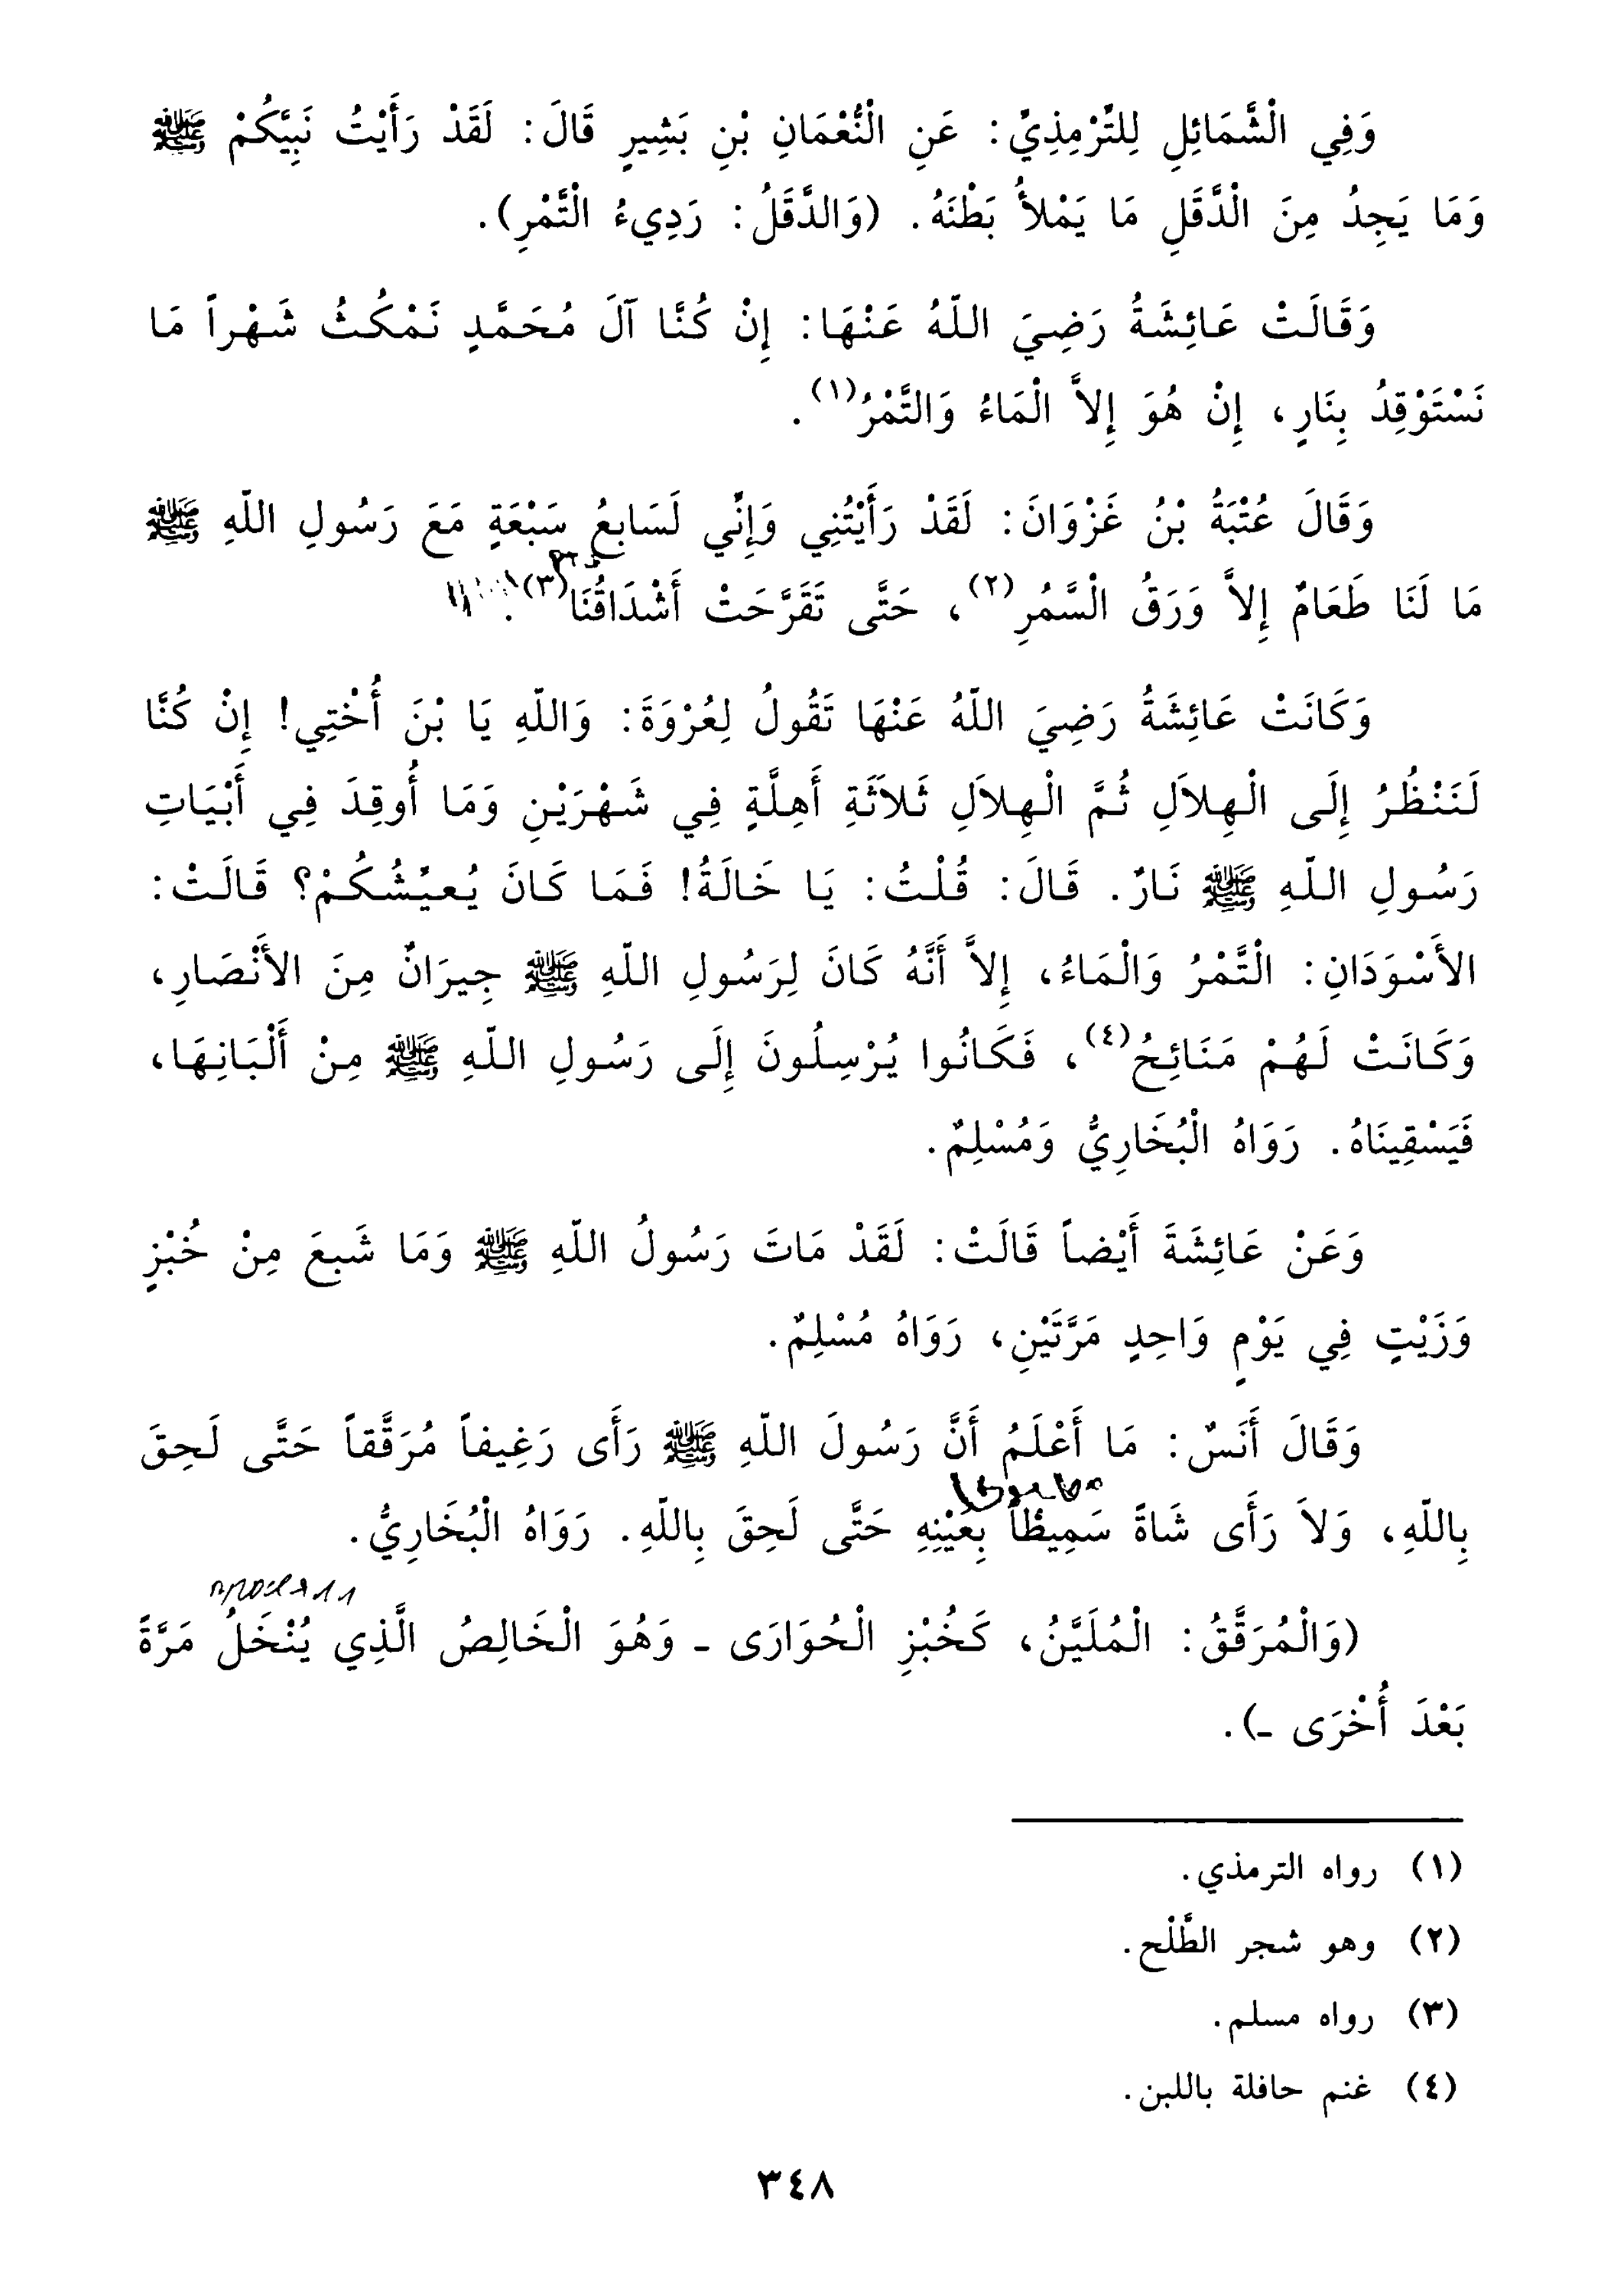 وَفِي الْشَّمَائِلِ لِلتِّرْمِذِيِّ: عَنِ الْنُّعْمَانِ بْنِ بَشِيرٍ قَالَ: لَقَدْ رَأَيْتُ نَبِيَّكُمْ ﷺ
وَمَا يَجِدُ مِنَ الْدَّقَلِ مَا يَمْلأُ بَطْنَهُ. (وَالدَّقَلُ: رَدِيءُ الْتَّمْرِ).
وَقَالَتْ عَائِشَةُ رَضِيَ اللّهُ عَنْهَا: إِنْ كُنَّا آلَ مُحَمَّدٍ نَمْكُثُ شَهْراً مَا
نَسْتَوْقِدُ بِنَارٍ، إِنْ هُوَ إِلاَّ الْمَاءُ وَالتَّمْرُ(١).
وَقَالَ عُتْبَةُ بْنُ غَزْوَانَ: لَقَدْ رَأَيْتُنِي وَإِنِّي لَسَابِعُ سَبْعَةٍ مَعَ رَسُولِ اللّهِ ﷺ
مَا لَنَا طَعَامٌ إِلاَّ وَرَقُ الْسَّمُرِ(٢)، حَتَّى تَقَرَّحَتْ أَشْدَاقُنَا(٣).
وَكَانَتْ عَائِشَةُ رَضِيَ اللّهُ عَنْهَا تَقُولُ لِعُرْوَةَ: وَاللّهِ يَا بْنَ أُخْتِي! إِنْ كُنَّا
لَنَنْظُرُ إِلَى الْهِلاَلِ ثُمَّ الْهِلاَلِ ثَلاَثَةِ أَهِلَّةٍ فِي شَهْرَيْنِ وَمَا أُوقِدَ فِي أَبْيَاتِ
رَسُولِ اللّهِ ﷺ نَارٌ. قَالَ: قُلْتُ: يَا خَالَةُ! فَمَا كَانَ يُعيِّشُكُمْ؟ قَالَتْ:
الأَسْوَدَانِ: الْتَّمْرُ وَالْمَاءُ، إِلاَّ أَنَّهُ كَانَ لِرَسُولِ اللّهِ ﷺ جِيرَانٌ مِنَ الأَنْصَارِ،
وَكَانَتْ لَهُمْ مَنَائِحُ(٤)، فَكَانُوا يُرْسِلُونَ إِلَى رَسُولِ اللّهِ ﷺ مِنْ أَلْبَانِهَا،
فَيَسْقِينَاهُ. رَوَاهُ الْبُخَارِيُّ وَمُسْلِمٌ.
وَعَنْ عَائِشَةَ أَيْضاً قَالَتْ: لَقَدْ مَاتَ رَسُولُ اللّهِ ﷺ وَمَا شَبِعَ مِنْ خُبْزٍ
وَزَيْتٍ فِي يَوْمٍ وَاحِدٍ مَرَّتَيْنِ، رَوَاهُ مُسْلِمٌ.
وَقَالَ أَنَسٌ: مَا أَعْلَمُ أَنَّ رَسُولَ اللّهِ ﷺ رَأَى رَغِيفاً مُرَقَّقاً حَتَّى لَحِقَ
بِاللّهِ، وَلاَ رَأَى شَاةً سَمِيطاً بِعَيْنِهِ حَتَّى لَحِقَ بِاللّهِ. رَوَاهُ الْبُخَارِيُّ.
(وَالْمُرَقَّقُ: الْمُلَيَّنُ، كَخُبْزِ الْحُوَارَى ـ وَهُوَ الْخَالِصُ الَّذِي يُنْخَلُ مَرَّةً
بَعْدَ أُخْرَى ـ).
(١) رواه الترمذي.
(٢) وهو شجر الطَّلْح.
(٣) رواه مسلم.
(٤) غنم حافلة باللبن.
٣٤٨